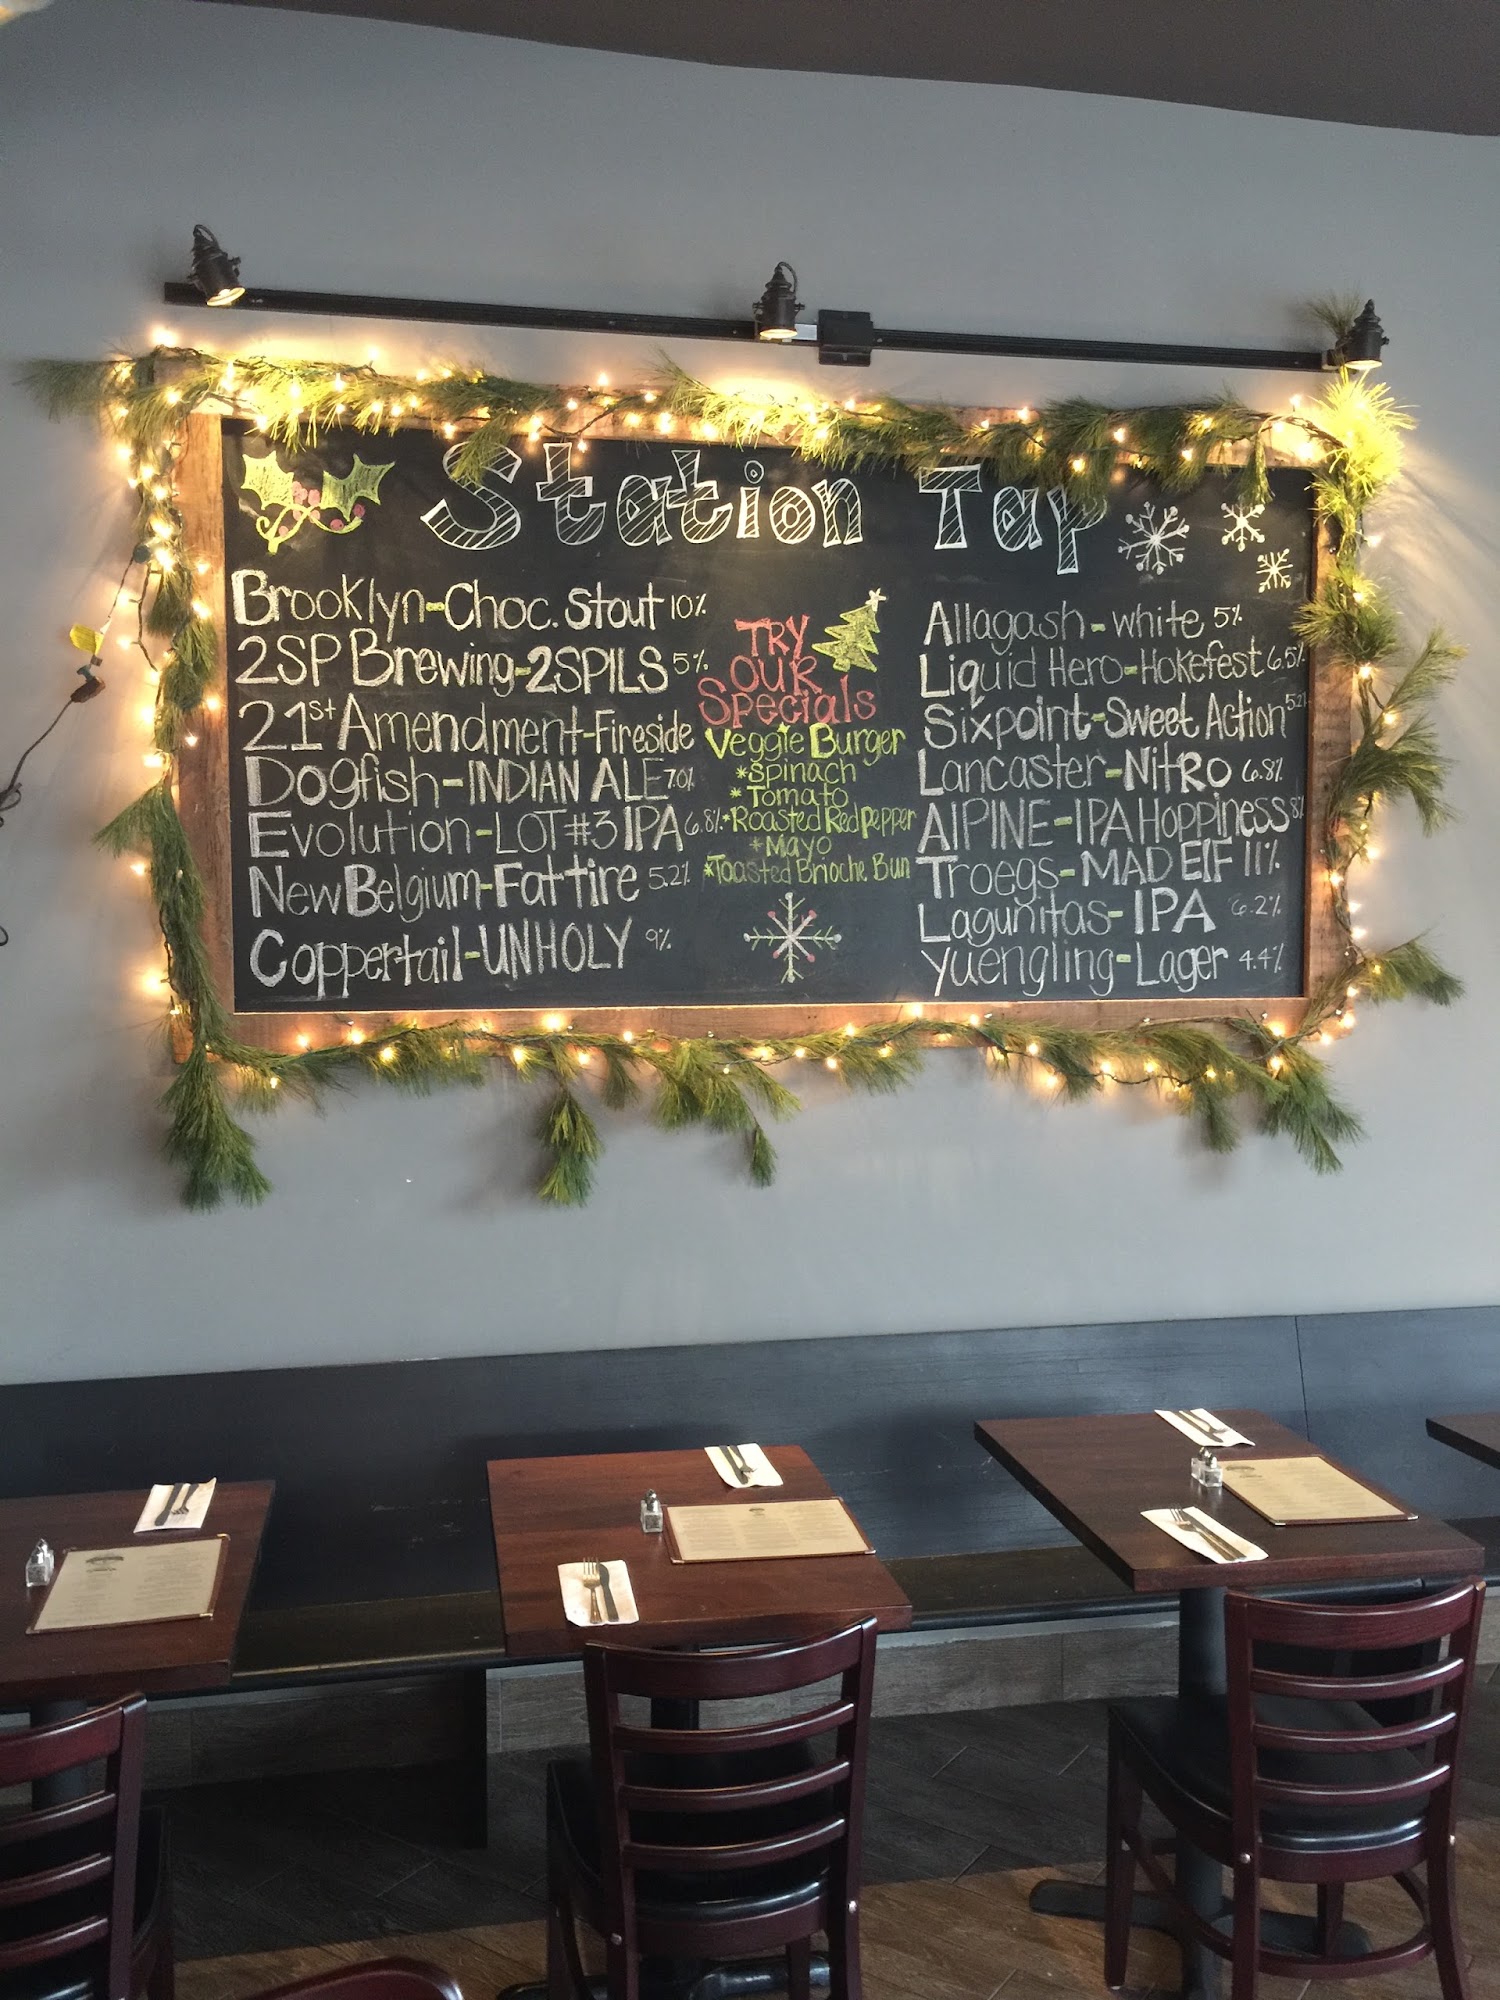 Station Tap
Brooklyn-Choc. Stout 10%
2SP Brewing-2SPILS 5%
21st Amendment-Fireside
Dogfish-INDIAN ALE 7.0%
Evolution-LOT#3 IPA 6.8%
New Belgium-Fat tire 5.2%
Coppertail-UNHOLY 9%
TRY
OUR
Specials
Veggie Burger
*Spinach
*Tomato
*Roasted Red Pepper
*Mayo
*Toasted Brioche Bun
Allagash-White 5%
Liquid Hero-Hokefest 6.5%
Sixpoint-Sweet Action 5.2%
Lancaster-NitRO 6.8%
AlPINE-IPA Hoppiness 8%
Troegs-MAD ElF 11%
Lagunitas-IPA 6.2%
Yuengling-Lager 4.4%